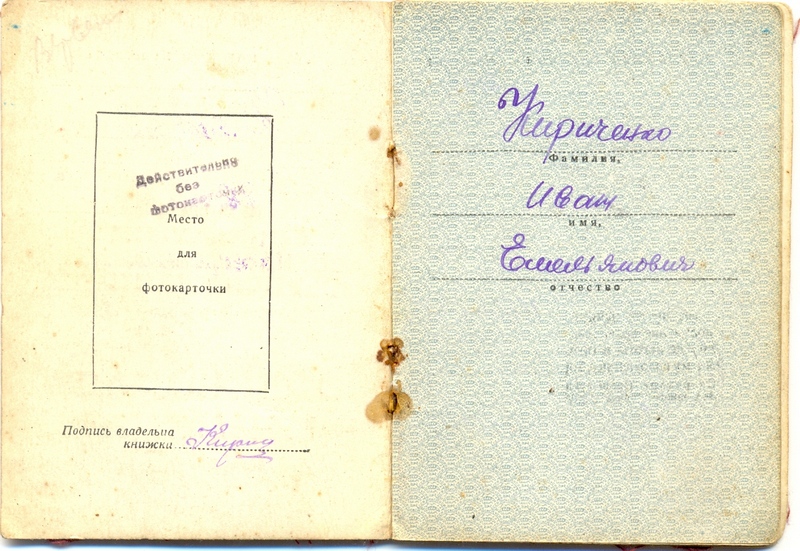 Действительна
без
фотокарточки
Место
для
фотокарточки
Подпись владельца
книжки
Кириченко
Фамилия,
Иван
имя,
Емельянович
отчество